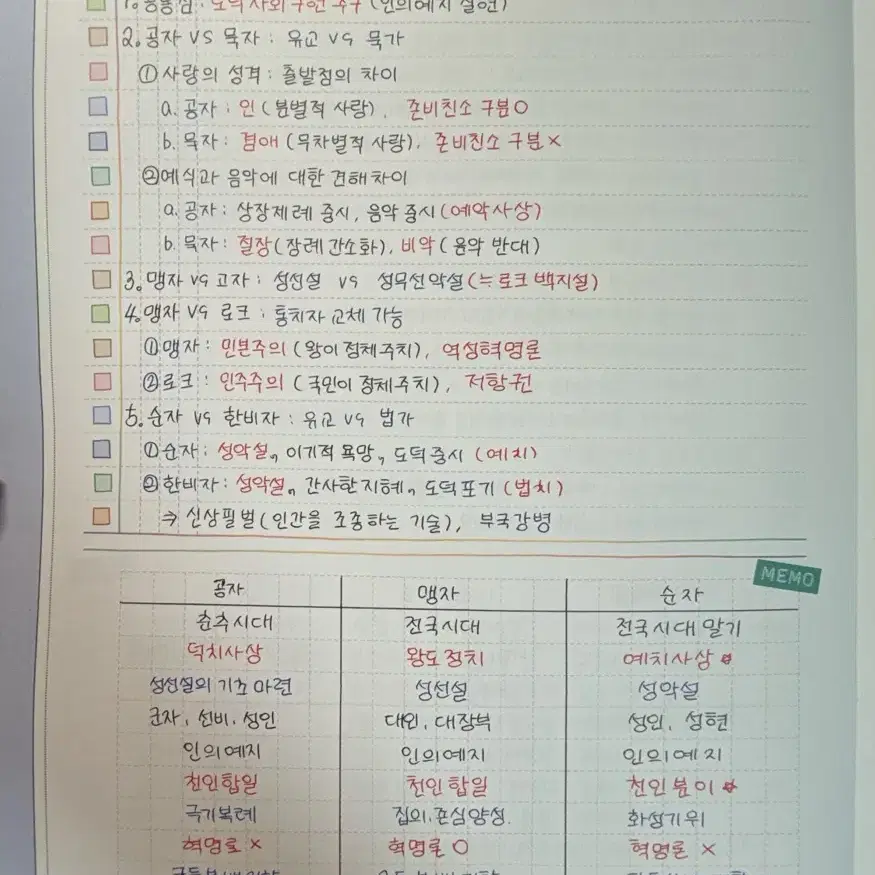 1. 공통점 : 도덕사회 구현 추구 (인의예지 실현)
2. 공자 VS 묵자 : 유교 VS 묵가
① 사랑의 성격 : 출발점의 차이
a. 공자 : 인 (분별적 사랑), 존비친소 구분 O
b. 묵자 : 겸애 (무차별적 사랑), 존비친소 구분 ×
② 예식과 음악에 대한 견해 차이
a. 공자 : 상장제례 중시, 음악 중시 (예악사상)
b. 묵자 : 절장 (장례 간소화), 비악 (음악 반대)
3. 맹자 VS 고자 : 성선설 VS 성무선악설 (≒ 로크 백지설)
4. 맹자 VS 로크 : 통치자 교체 가능
① 맹자 : 민본주의 (왕이 정체주치), 역성혁명론
② 로크 : 민주주의 (국민이 정체주치), 저항권
5. 순자 VS 한비자 : 유교 VS 법가
① 순자 : 성악설, 이기적 욕망, 도덕 중시 (예치)
② 한비자 : 성악설, 간사한 지혜, 도덕 포기 (법치)
⇒ 신상필벌 (인간을 조종하는 기술), 부국강병
MEMO
공자 맹자 순자
춘추시대 전국시대 전국시대 말기
덕치사상 왕도정치 예치사상 ☆
성선설의 기초 마련 성선설 성악설
군자, 선비, 성인 대인, 대장부 성인, 성현
인의예지 인의예지 인의예지
천인합일 천인합일 천인분이 ☆
극기복례 집의, 존심양성. 화성기위
혁명론 × 혁명론 O 혁명론 ×